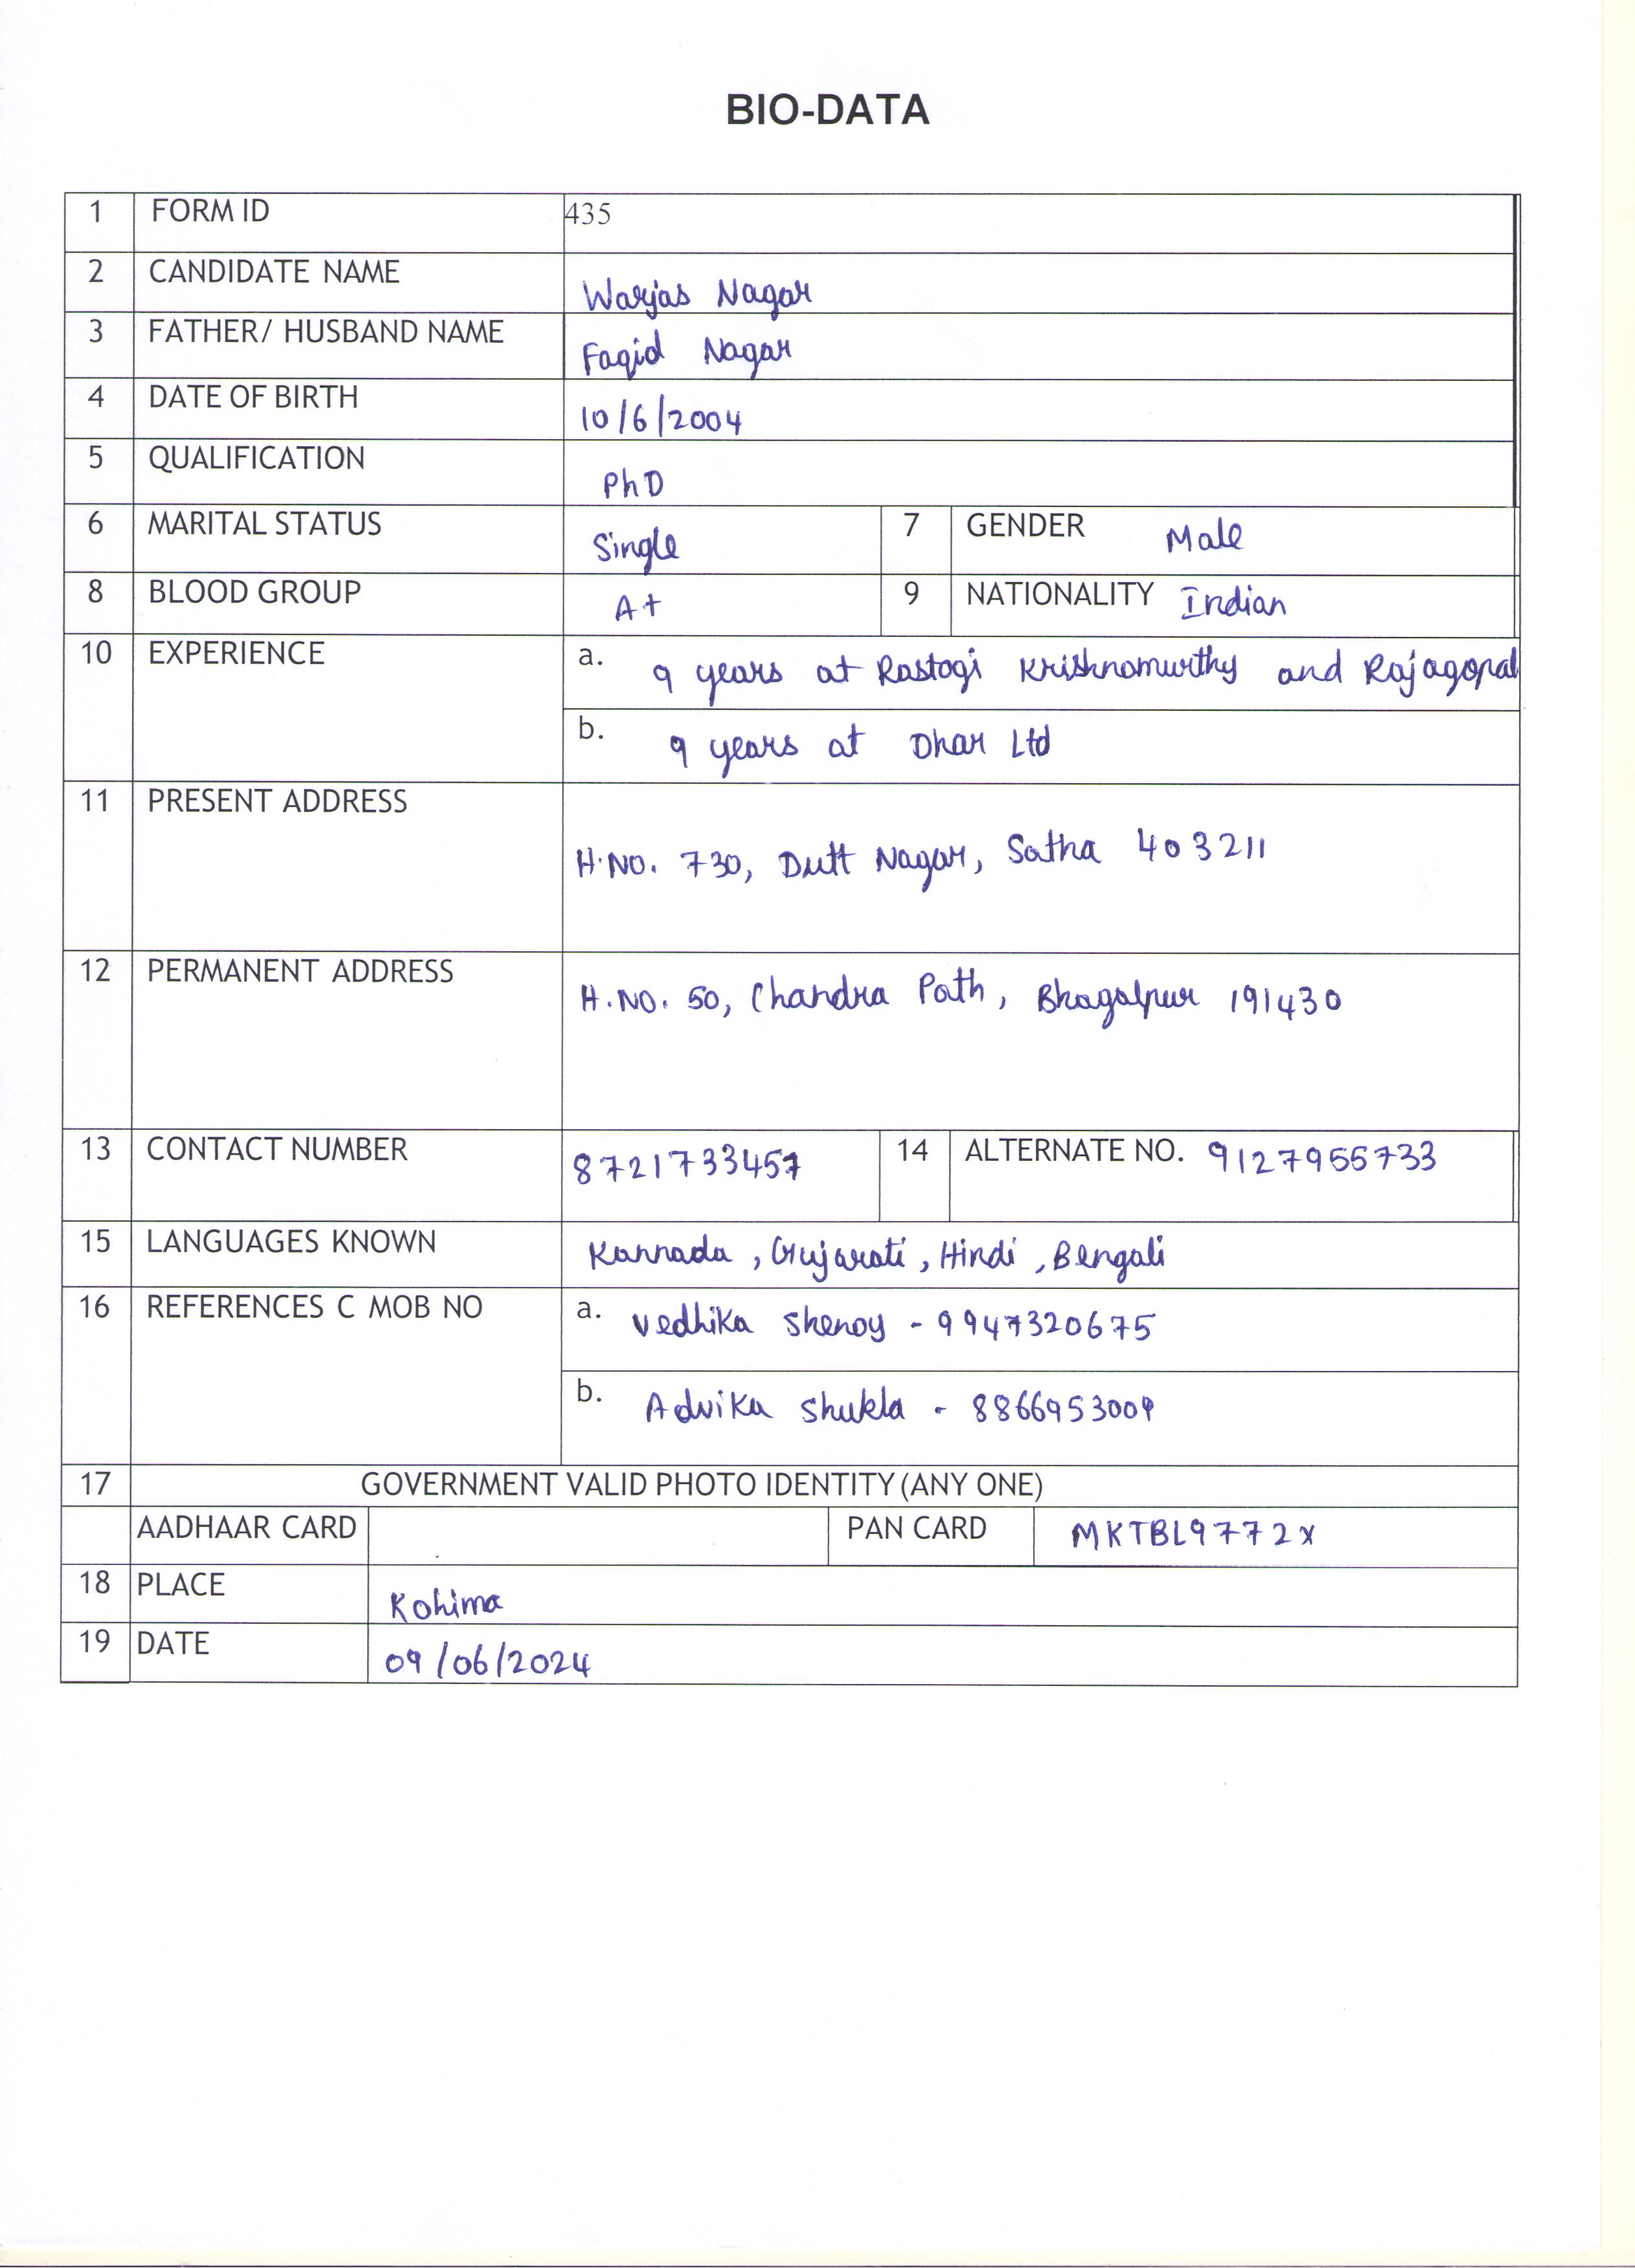 BIO-DATA
1 FORM ID 435
2 CANDIDATE NAME Warjas Nagar
3 FATHER/ HUSBAND NAME Faqid Nagar
4 DATE OF BIRTH 10/6/2004
5 QUALIFICATION PhD
6 MARITAL STATUS Single 7 GENDER Male
8 BLOOD GROUP A+ 9 NATIONALITY Indian
10 EXPERIENCE a. 9 years at Rastogi Krishnamurthy and Rajagopal
b. 9 years at Dhar Ltd
11 PRESENT ADDRESS
H.NO. 730, Dutt Nagar, Satna 403211
12 PERMANENT ADDRESS H.NO. 50, Chandra Path, Bhagalpur 191430
13 CONTACT NUMBER 8721733457 14 ALTERNATE NO. 9127955733
15 LANGUAGES KNOWN Kannada , Gujarati , Hindi , Bengali
16 REFERENCES C MOB NO a. Vedhika Shenoy - 9947320675
b. Advika Shukla - 8866953009
17 GOVERNMENT VALID PHOTO IDENTITY (ANY ONE)
AADHAAR CARD PAN CARD MKTBL9772X
18 PLACE Kohima
19 DATE 09/06/2024